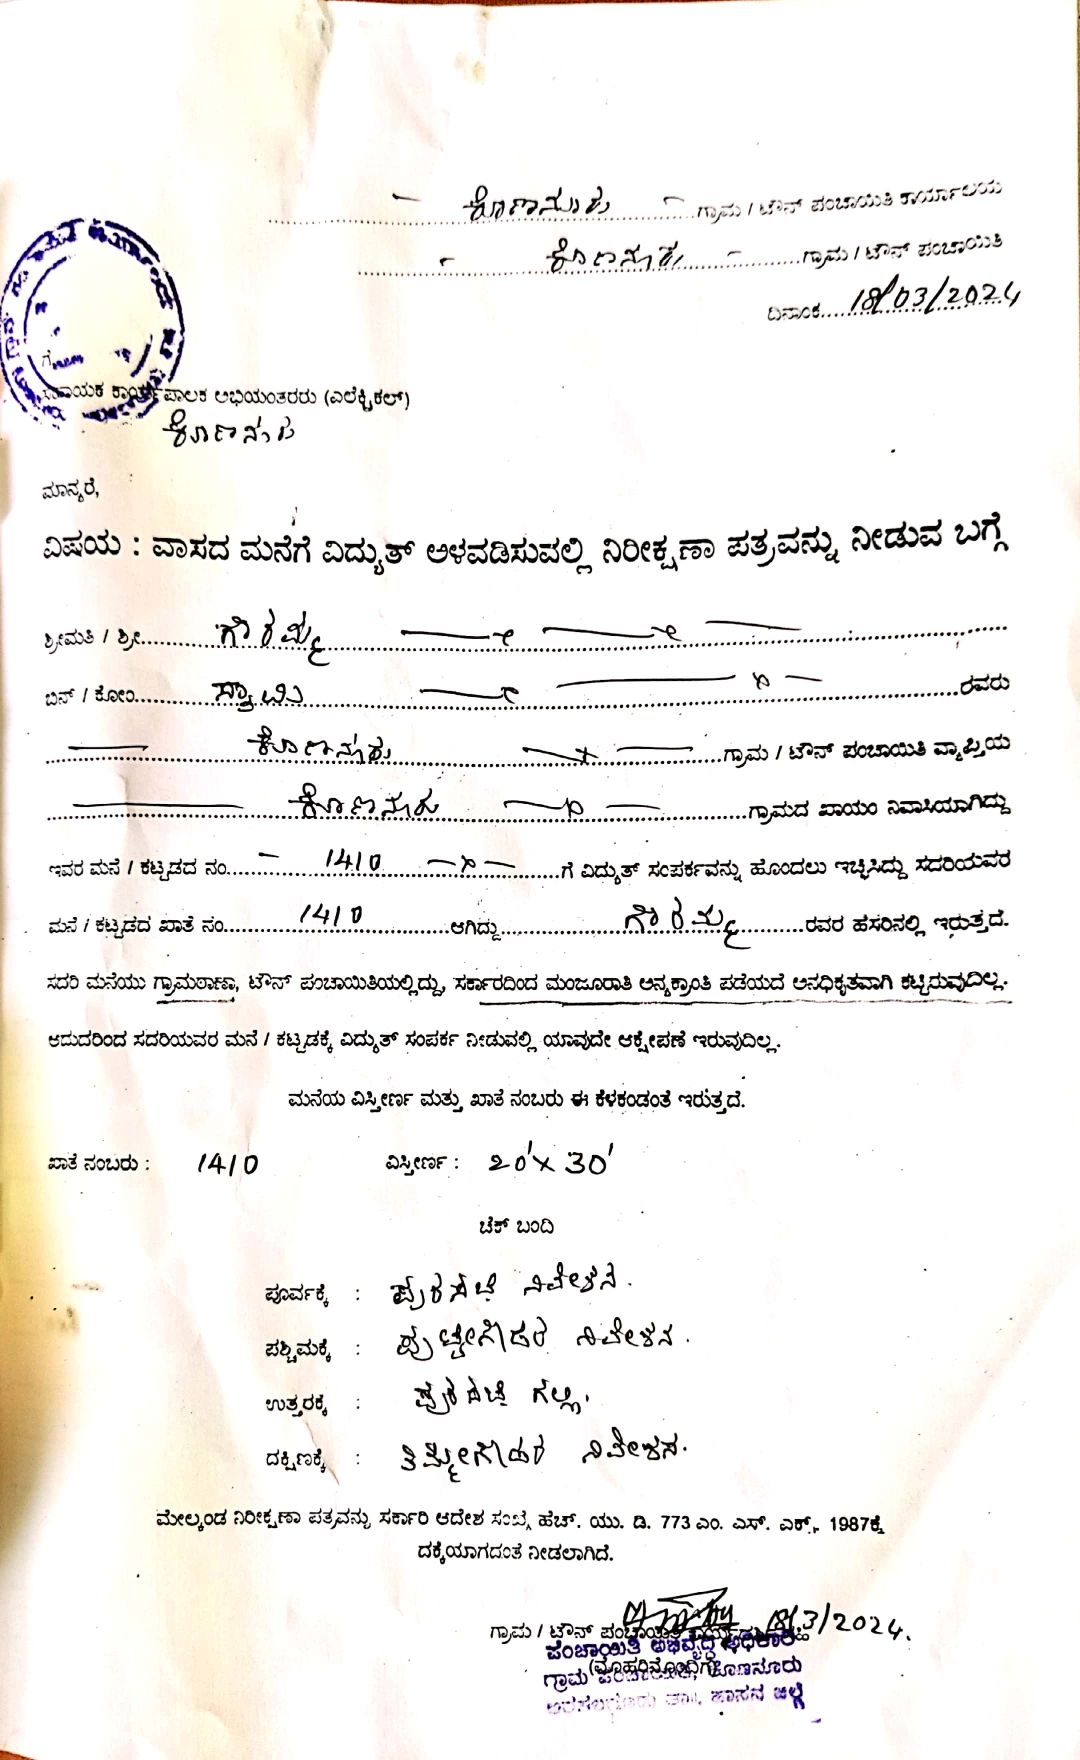 ಕೊಣನೂರು ಗ್ರಾಮ / ಟೌನ್ ಪಂಚಾಯಿತಿ ಕಾರ್ಯಾಲಯ
ಕೊಣನೂರು ಗ್ರಾಮ / ಟೌನ್ ಪಂಚಾಯಿತಿ
ದಿನಾಂಕ 18/03/2024
ಗೆ,
ಸಹಾಯಕ ಕಾರ್ಯಪಾಲಕ ಅಭಿಯಂತರರು (ಎಲೆಕ್ಟ್ರಿಕಲ್)
ಕೊಣನೂರು
ಮಾನ್ಯರೆ,
ವಿಷಯ : ವಾಸದ ಮನೆಗೆ ವಿದ್ಯುತ್ ಅಳವಡಿಸುವಲ್ಲಿ ನಿರೀಕ್ಷಣಾ ಪತ್ರವನ್ನು ನೀಡುವ ಬಗ್ಗೆ
ಶ್ರೀಮತಿ / ಶ್ರೀ ಗೌರಮ್ಮ
ಬಿನ್ / ಕೋಂ ಸ್ವಾಮಿ ರವರು
ಕೊಣನೂರು ಗ್ರಾಮ / ಟೌನ್ ಪಂಚಾಯಿತಿ ವ್ಯಾಪ್ತಿಯ
ಕೊಣನೂರು ಗ್ರಾಮದ ಖಾಯಂ ನಿವಾಸಿಯಾಗಿದ್ದು
ಇವರ ಮನೆ / ಕಟ್ಟಡದ ನಂ. 1410 ಗೆ ವಿದ್ಯುತ್ ಸಂಪರ್ಕವನ್ನು ಹೊಂದಲು ಇಚ್ಛಿಸಿದ್ದು ಸದರಿಯವರ
ಮನೆ / ಕಟ್ಟಡದ ಖಾತೆ ನಂ. 1410 ಆಗಿದ್ದು ಗೌರಮ್ಮ ರವರ ಹೆಸರಿನಲ್ಲಿ ಇರುತ್ತದೆ.
ಸದರಿ ಮನೆಯು ಗ್ರಾಮಠಾಣಾ, ಟೌನ್ ಪಂಚಾಯಿತಿಯಲ್ಲಿದ್ದು, ಸರ್ಕಾರದಿಂದ ಮಂಜೂರಾತಿ ಅನ್ಯಕ್ರಾಂತಿ ಪಡೆಯದೆ ಅನಧಿಕೃತವಾಗಿ ಕಟ್ಟಿರುವುದಿಲ್ಲ.
ಆದುದರಿಂದ ಸದರಿಯವರ ಮನೆ / ಕಟ್ಟಡಕ್ಕೆ ವಿದ್ಯುತ್ ಸಂಪರ್ಕ ನೀಡುವಲ್ಲಿ ಯಾವುದೇ ಆಕ್ಷೇಪಣೆ ಇರುವುದಿಲ್ಲ.
ಮನೆಯ ವಿಸ್ತೀರ್ಣ ಮತ್ತು ಖಾತೆ ನಂಬರು ಈ ಕೆಳಕಂಡಂತೆ ಇರುತ್ತದೆ.
ಖಾತೆ ನಂಬರು : 1410 ವಿಸ್ತೀರ್ಣ : 20'x 30'
ಚೆಕ್ ಬಂದಿ
ಪೂರ್ವಕ್ಕೆ : ಪುರಸಭೆ ನಿವೇಶನ.
ಪಶ್ಚಿಮಕ್ಕೆ : ಪುಟ್ಟೇಗೌಡರ ನಿವೇಶನ.
ಉತ್ತರಕ್ಕೆ : ಪುರಸಭೆ ಗಲ್ಲಿ.
ದಕ್ಷಿಣಕ್ಕೆ : ತಿಮ್ಮೇಗೌಡರ ನಿವೇಶನ.
ಮೇಲ್ಕಂಡ ನಿರೀಕ್ಷಣಾ ಪತ್ರವನ್ನು ಸರ್ಕಾರಿ ಆದೇಶ ಸಂಖ್ಯೆ ಹೆಚ್. ಯು. ಡಿ. 773 ಎಂ. ಎಸ್. ಎಕ್ಸ್. 1987ಕ್ಕೆ
ದಕ್ಕೆಯಾಗದಂತೆ ನೀಡಲಾಗಿದೆ.
18/3/2024.
ಗ್ರಾಮ / ಟೌನ್ ಪಂಚಾಯಿತಿ
ಪಂಚಾಯಿತಿ ಅಭಿವೃದ್ಧಿ ಅಧಿಕಾರಿ
(ಮೊಹರಿನೊಂದಿಗೆ)
ಗ್ರಾಮ ಪಂಚಾಯಿತಿ, ಕೊಣನೂರು
ಅರಕಲಗೂಡು ತಾ||, ಹಾಸನ ಜಿಲ್ಲೆ